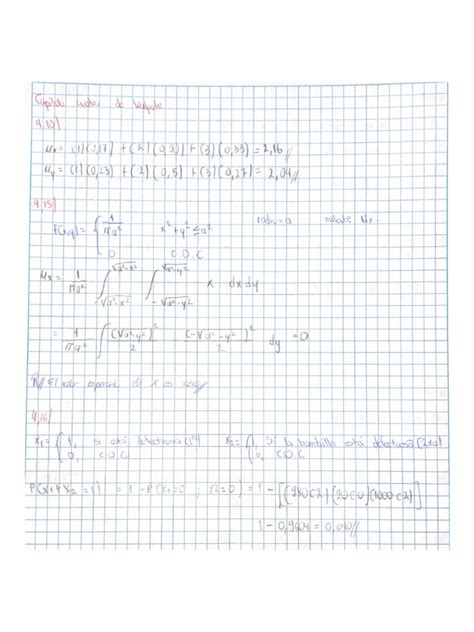 Capítulo cuatro de Walpole
4,13)
Mx = (1)(0,17) + (2)(0,5) + (3)(0,33) = 2,16//
My = (1)(0,23) + (2)(0,5) + (3)(0,27) = 2,04//
4,15)
f(x,y) = { 1/πa² x² + y² ≤ a² radio = a Mx.
0 C.O.C
Mx = 1/πa² ∫ √a²-x² -√a²-x² ∫ √a²-y² -√a²-y² x dx dy
= 1/πa² ∫ (√a²-y²)²/2 - (-√a²-y²)²/2 dy = 0
R// El valor esperado de x es cero//
4,16)
X1 = { 1, está defectuosa (1ª) X2 = { 1, Si la bombilla está defectuosa (2da)
0, C.O.C 0, C.O.C
P(X1 + X2 = 1) = 1 - P(X1 = 0 ; X2 = 0) = 1 - [(980C2)(20C0)(1000C2)]
1 - 0,9604 = 0,040//